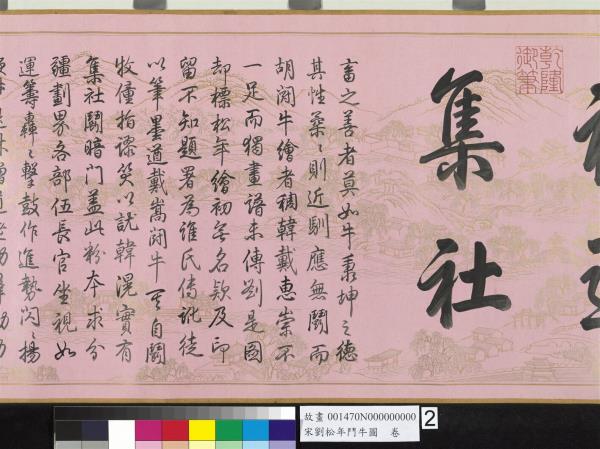 乾隆
御筆
集社
畜之善者莫如牛秉坤之德
其性柔〻則近馴應無鬪而
胡閗牛繪者稠韓戴惠崇不
一足而獨畫譜未傳劉是圖
却標松年繪初無名款及印
留不知題署為誰氏傳訛徒
以筆墨道戴嵩閗牛自鬪
牧僮指謬笑以訛韓滉實有
集社鬪暗門蓋此粉本求分
疆劃界各部伍長官坐視如
運籌轟〻擊鼓作進勢閃〻揚
故畫 001470N000000000
宋劉松年鬥牛圖 卷
2